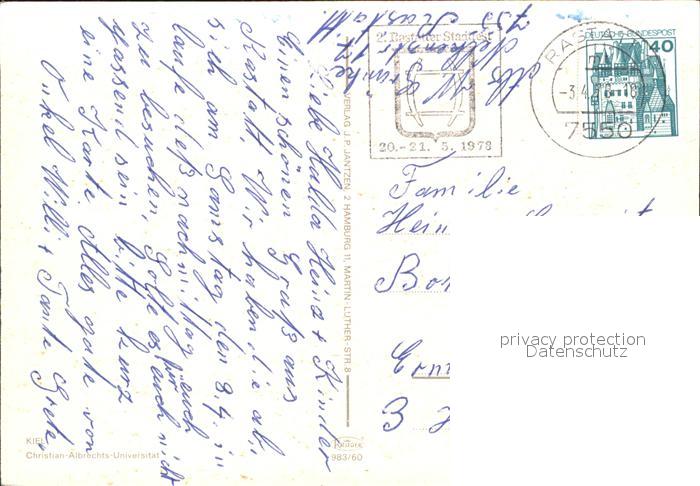 Liebe Halla Heinz + Kinder
Einen schönen Gruß aus
Rastatt. Wir haben die ab,
sich am Samstag den 8.4. in
Laufe des nachmittag euch
zu besuchen. Solte es euch nicht
passend sein bitte kurz
eine Karte. Alles gute von
Onkel Willi + Tante Grete,
KIEL
Christian-Albrechts-Universität
VERLAG J.P. JANTZEN 2 HAMBURG 11, MARTIN-LUTHER-STR. 8
983/60
2. Rastatter Stadtfest
20.-21. 5. 1978
RASTATT
-3.4.78-18
7550
DEUTSCHE BUNDESPOST
40
Abs. W.
755 Rastatt
Familie
Hein
Bo
3
privacy protection
Datenschutz